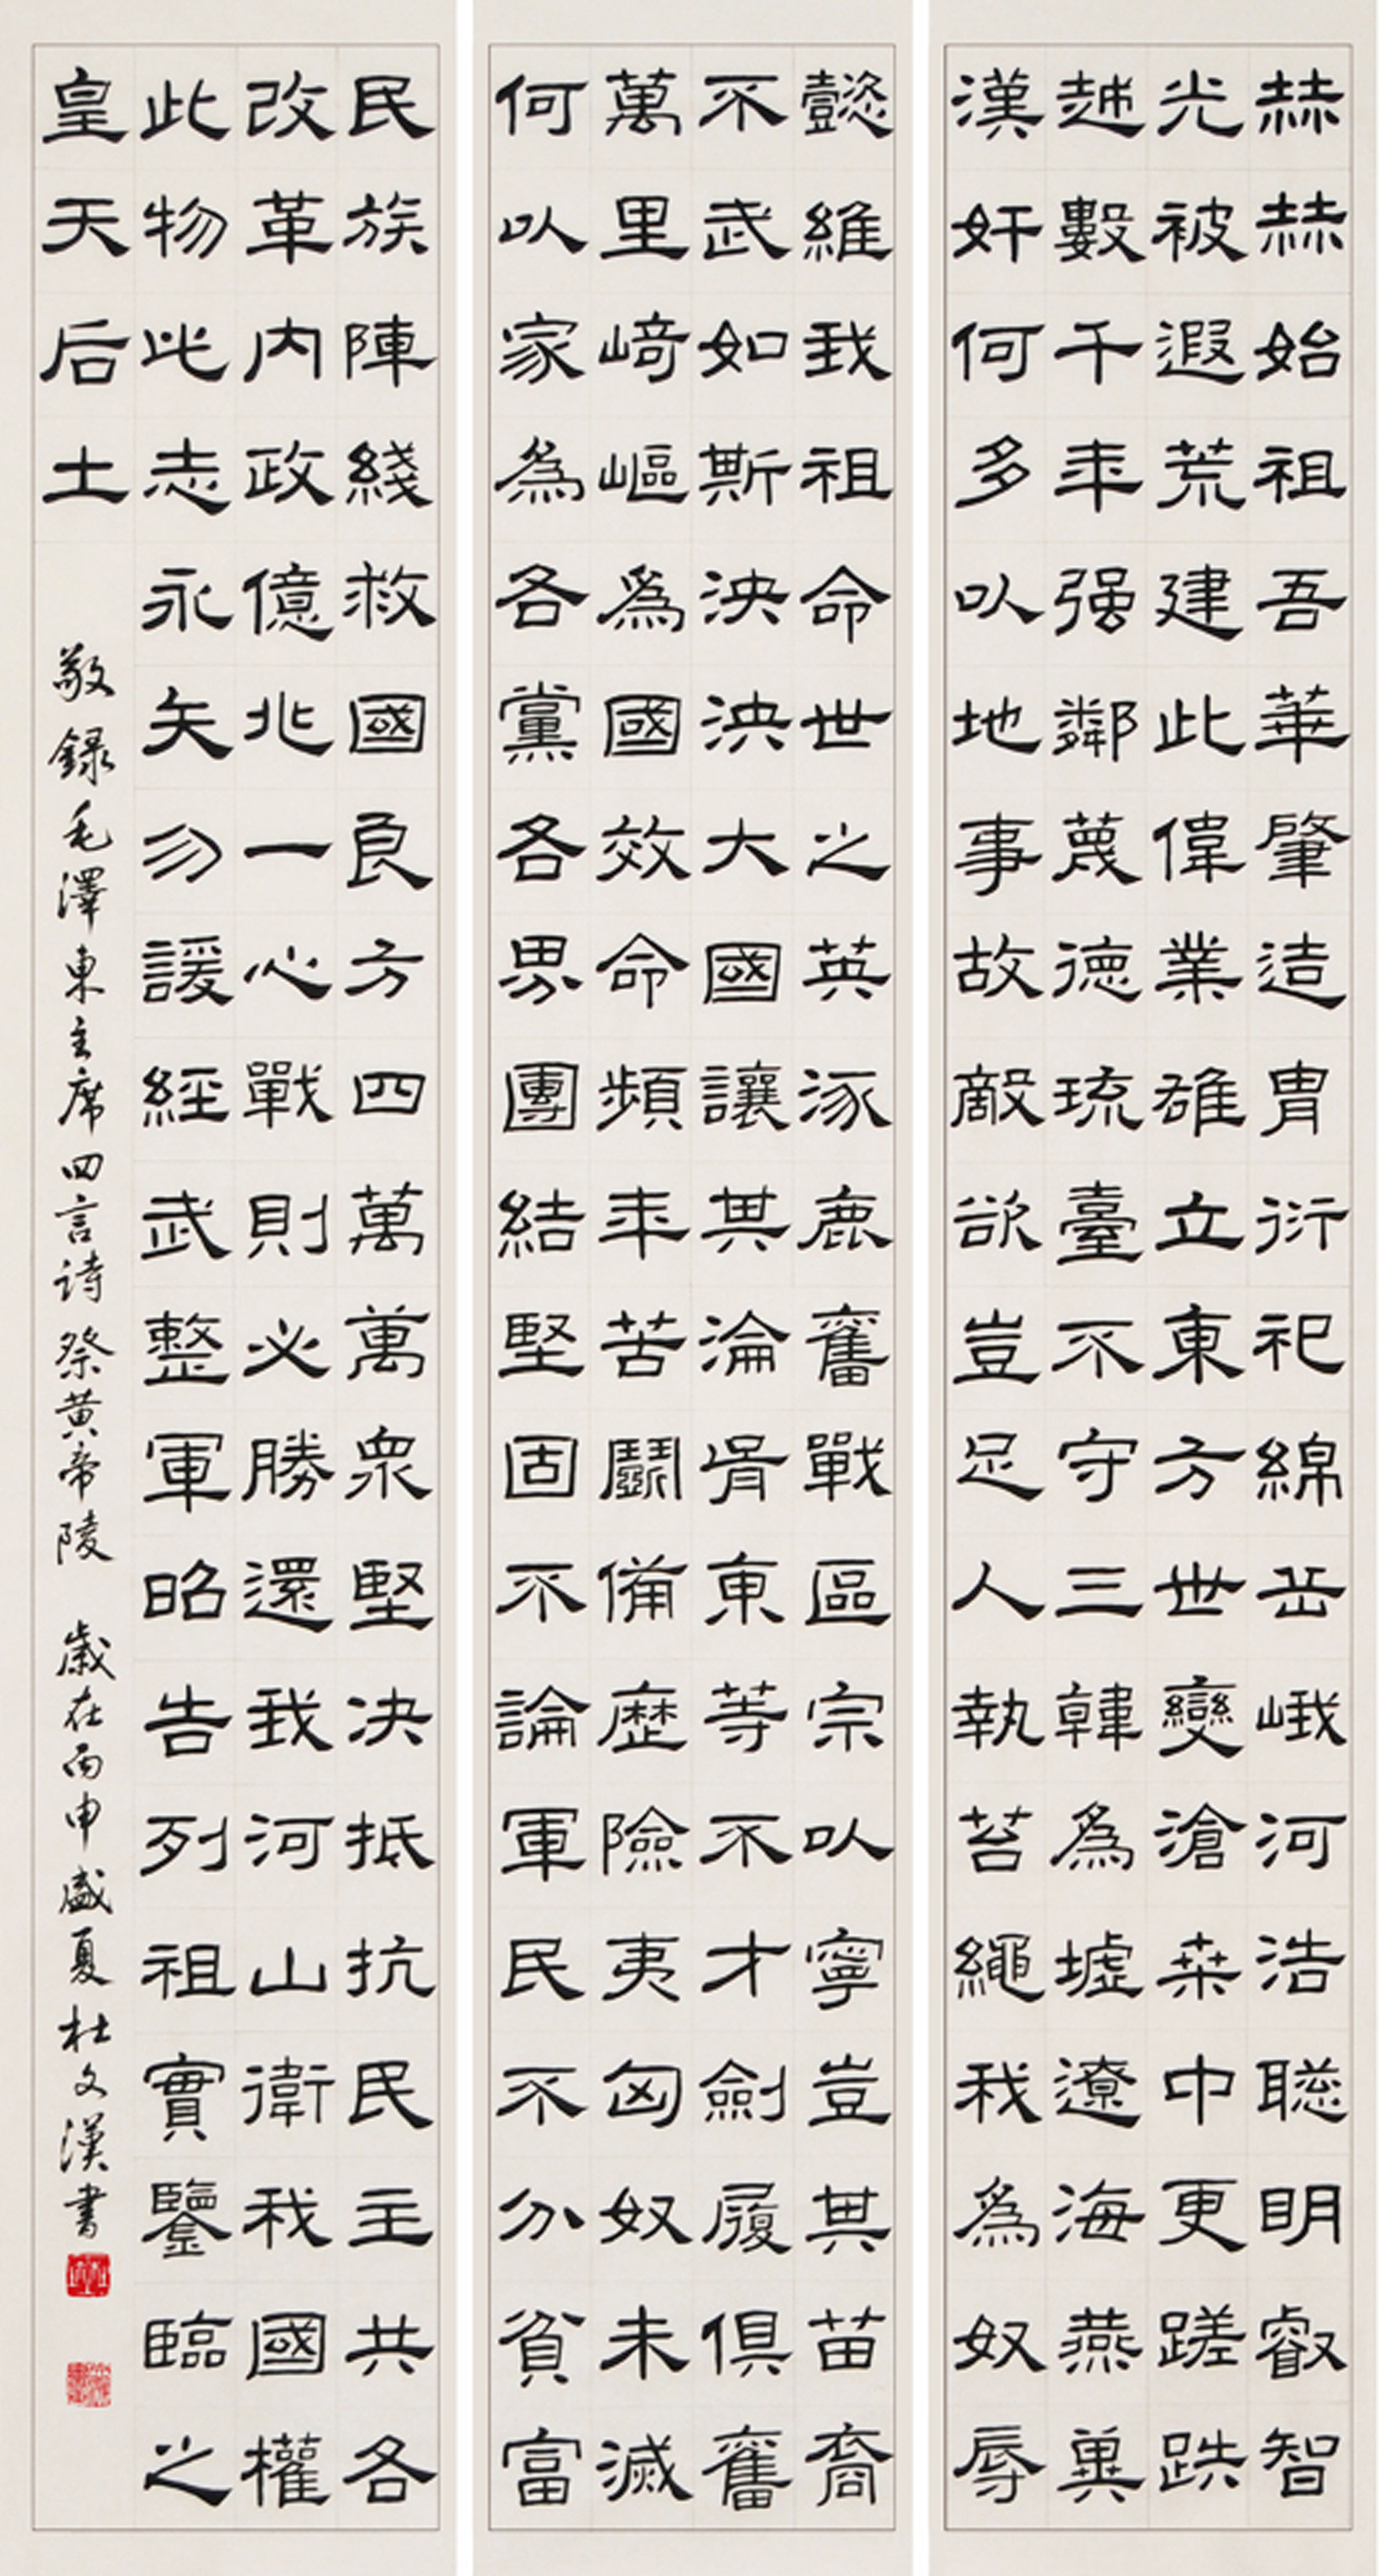 赫赫始祖吾華肇造胄衍祀綿岳峨河浩聰明叡智
光被遐荒建此偉業雄立東方世變滄桑中更蹉跌
越數千年强鄰蔑德琉臺不守三韓為墟遼海燕冀
漢奸何多以地事故敵欲豈足人執笞繩我為奴辱
懿維我祖命世之英涿鹿奮戰區宗以寧豈其苗裔
不武如斯泱泱大國讓其淪胥東等不才劍履俱奮
萬里崎嶇為國效命頻年苦鬭備歷險夷匈奴未滅
何以家為各黨各界團結堅固不論軍民不分貧富
民族陣綫救國良方四萬萬衆堅決抵抗民主共各
改革内政億兆一心戰則必勝還我河山衛我國權
此物此志永矢勿諼經武整軍昭告列祖實鑒臨之
皇天后土
敬録毛澤東主席四言诗祭黄帝陵 歲在丙申盛夏杜文漢書